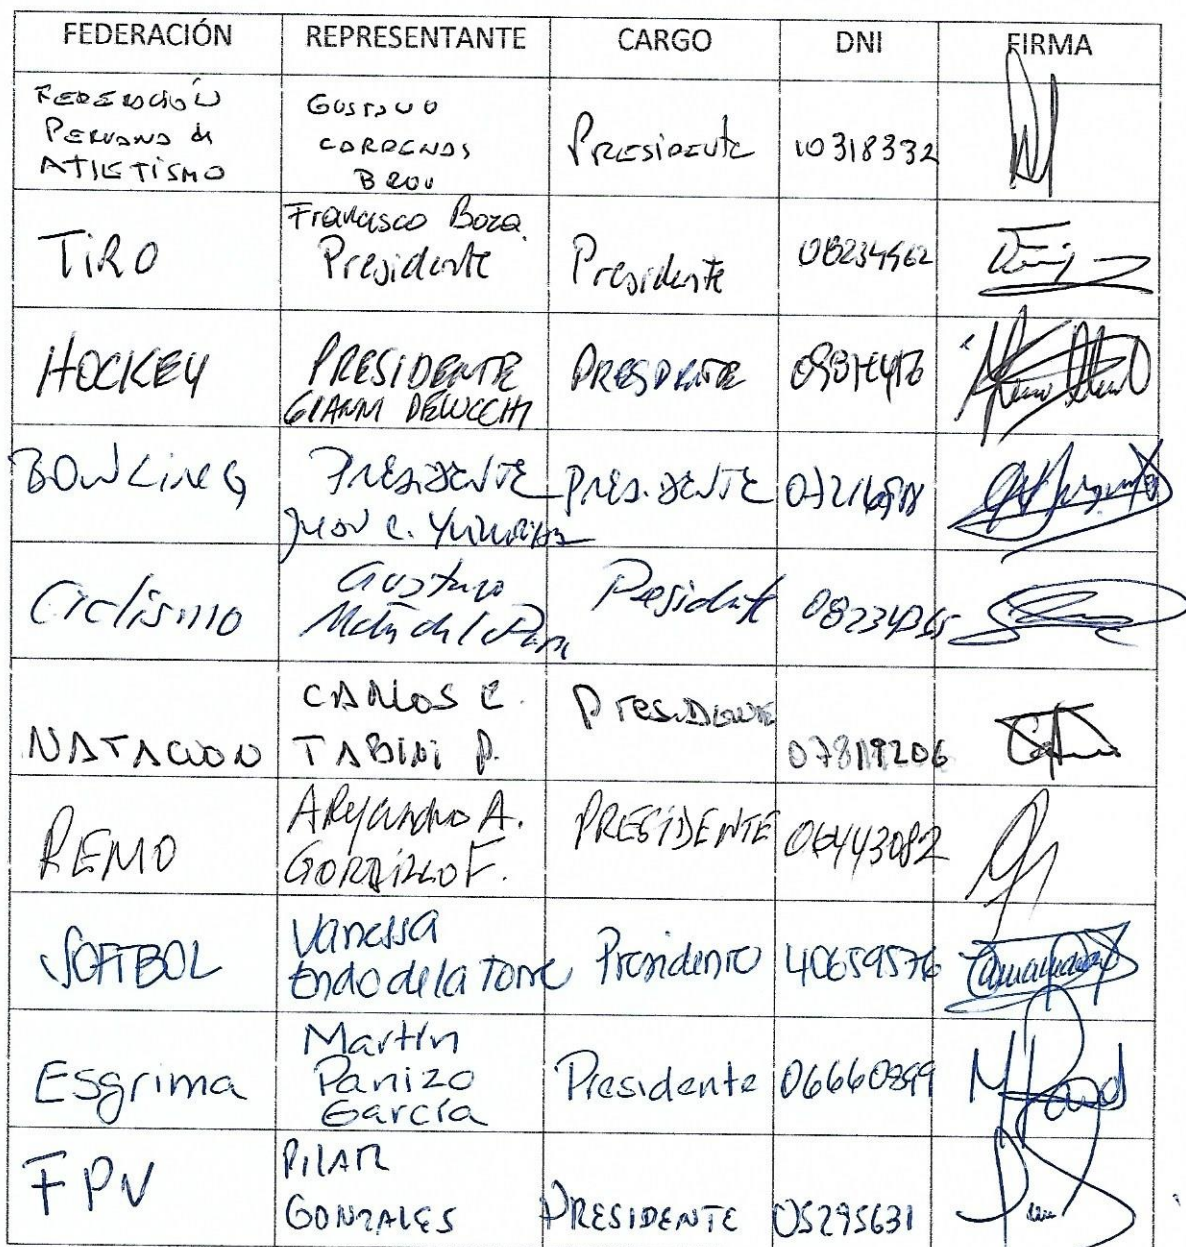 FEDERACIÓN REPRESENTANTE CARGO DNI FIRMA
FEDERACIÓN
PERUANA de
ATLETISMO
GUSTAVO
CARDENAS
BROU
PRESIDENTE
10318332
TIRO
Francisco Boza
Presidente
Presidente
HOCKEY
PRESIDENTE
GIANNI DELUCCHI
PRESIDENTE
BOWLING
PRESIDENTE
JUAN C.
PRESIDENTE
Ciclismo
Gustavo
Presidente
NATACION
CARLOS E.
TABINI P.
Presidente
07819206
REMO
Alejandro A.
GORDILLO F.
PRESIDENTE
06443082
SOFTBOL
Vanessa
Endo de la Torre
Presidente
40659576
Esgrima
Martín
Panizo
García
Presidente
06660899
FPV
PILAR
GONZALES
PRESIDENTE
05295631